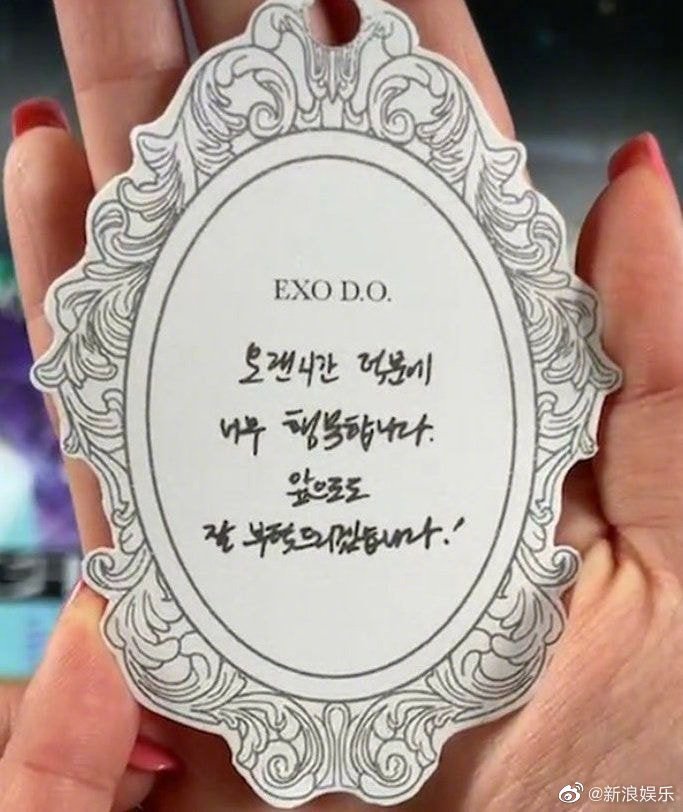 EXO D.O.
오랜시간 덕분에
너무 행복합니다.
앞으로도
잘 부탁드리겠습니다!
@新浪娱乐